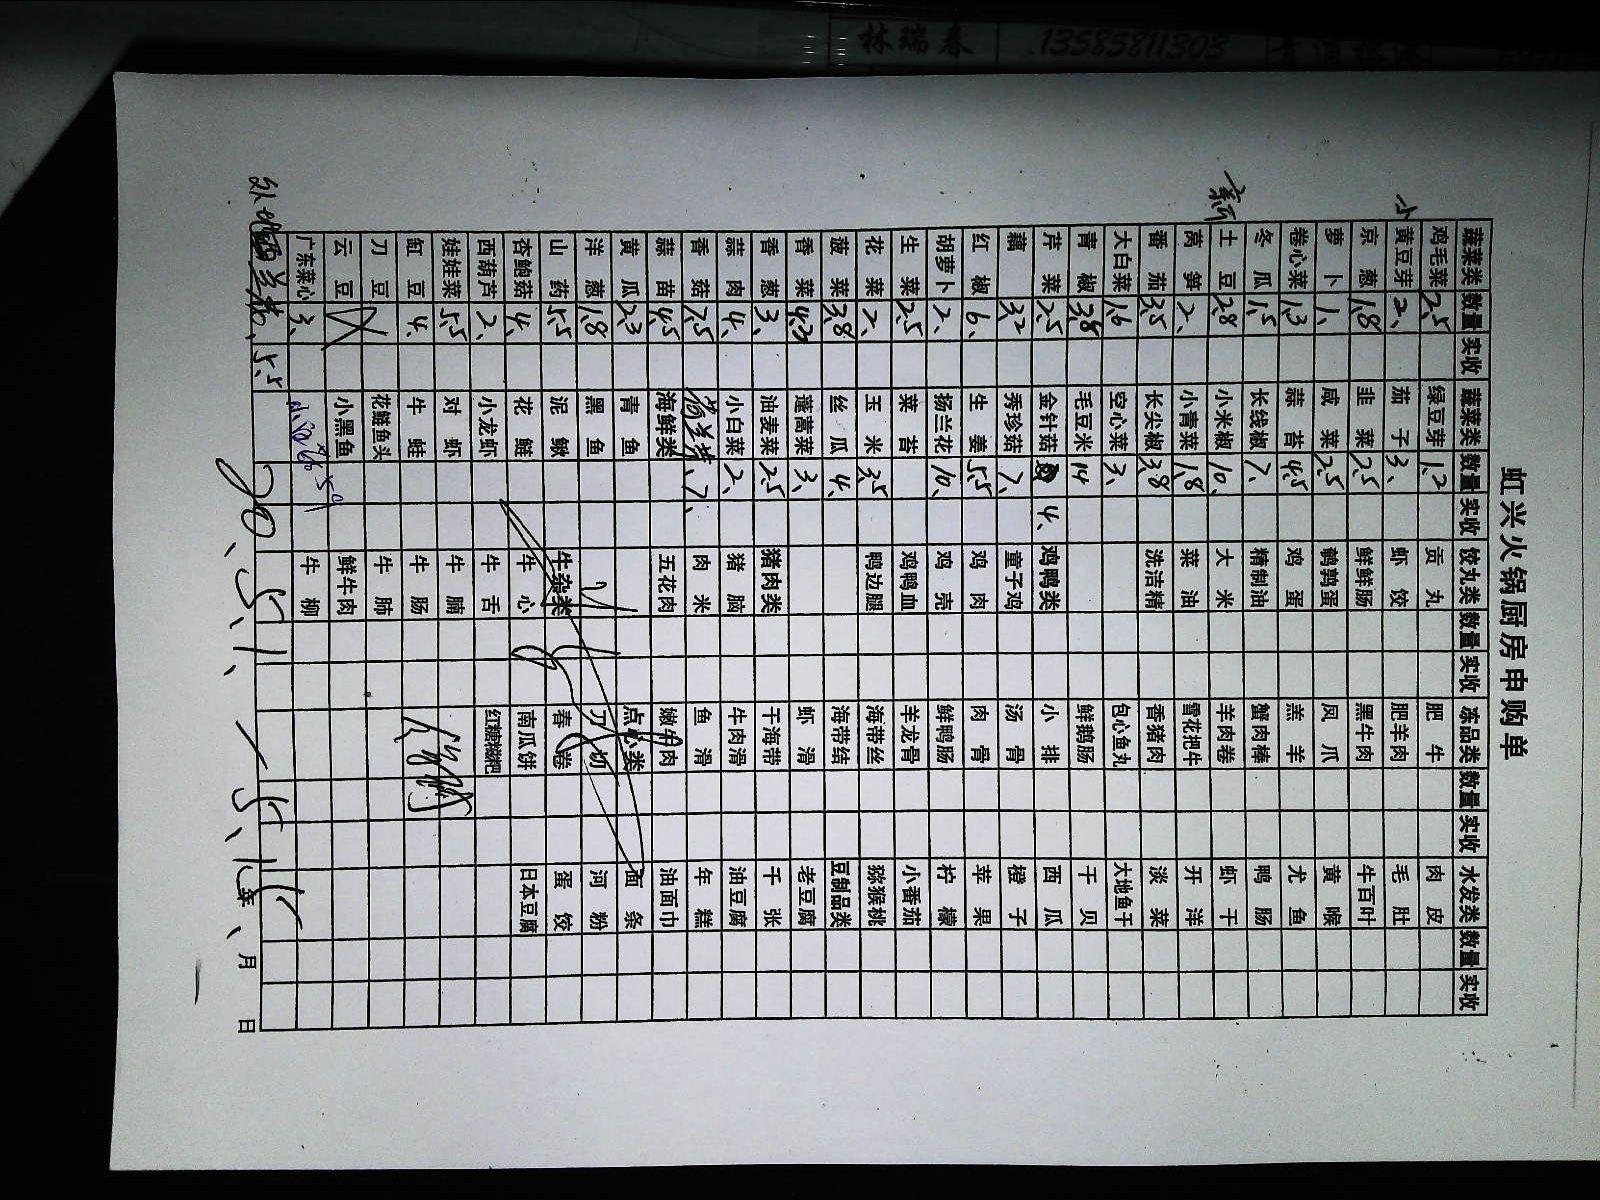 林瑞春 13585811303
虹兴火锅厨房申购单
蔬菜类 数量 实收 蔬菜类 数量 实收 饺丸类 数量 实收 冻品类 数量 实收 水发类 数量 实收
鸡毛菜 2.5 绿豆芽 1.2 贡丸 肥牛 肉皮
小 黄豆芽 2、 茄子 3、 虾饺 肥羊肉 毛肚
京葱 1.8 韭菜 2.5 鲜鲜肠 黑牛肉 牛百叶
萝卜 1、 咸菜 2.5 鹌鹑蛋 凤爪 黄喉
卷心菜 1.3 蒜苔 4.5 鸡蛋 羔羊 尤鱼
冬瓜 1.5 长线椒 7、 精制油 蟹肉棒 鸭肠
新 土豆 2.8 小米椒 10、 大米 羊肉卷 虾干
莴笋 2、 小青菜 1.8 菜油 雪花把牛 开洋
番茄 3.5 长尖椒 3.8 洗洁精 香猪肉 淡菜
大白菜 1.6 空心菜 3、 包心鱼丸 大地鱼干
青椒 3.8 毛豆米 14 鲜鹅肠 干贝
芹菜 2.5 金针菇 4、 鸡鸭类 小排 西瓜
藕 3.2 秀珍菇 7、 童子鸡 汤骨 橙子
红椒 6、 生姜 5.5 鸡肉 肉骨 苹果
胡萝卜 2、 扬兰花 10、 鸡壳 鲜鸭肠 柠檬
生菜 2.5 菜苔 鸡鸭血 羊龙骨 小番茄
花菜 2、 玉米 3.5 鸭边腿 海带丝 猕猴桃
菠菜 3.8 丝瓜 4、 海带结 豆制品类
香菜 4.2 蓬蒿菜 3、 虾滑 老豆腐
香葱 3、 油麦菜 2.5 猪肉类 干海带 千张
蒜肉 4、 小白菜 2、 猪脑 牛肉滑 油豆腐
香菇 7.5 7、 肉米 鱼滑 年糕
蒜苗 4.5 海鲜类 五花肉 嫩牛肉 油面巾
黄瓜 2.3 青鱼 点心类 面条
洋葱 1.8 黑鱼 刀切 河粉
山药 5.5 泥鳅 牛杂类 春卷 蛋饺
杏鲍菇 4、 花鲢 牛心 南瓜饼 日本豆腐
西葫芦 2、 小龙虾 牛舌 红糖糍粑
娃娃菜 5.5 对虾 牛腩
缸豆 4、 牛蛙 牛肠
刀豆 花鲢鱼头 牛肺
云豆 小黑鱼 鲜牛肉
广东菜心 3、 牛柳
5.5
年 月 日